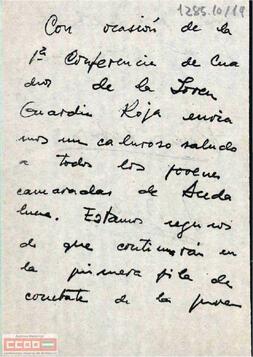 1285.10/19
Con ocasión de la
1ª Conferencia de Cua
dros de la Joven
Guardia Roja envia
mos un caluroso saludo
a todos los jovenes
camaradas de Anda
lucia. Estamos seguros
de que continuarán en
la primera fila de
combate de la juven
CCOO